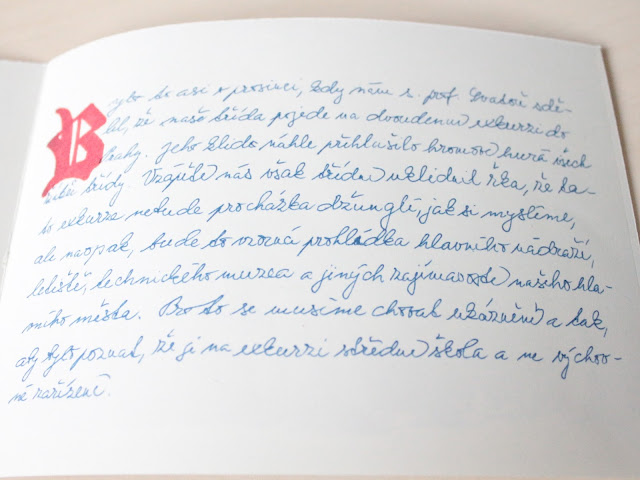 Bylo to asi v prosinci, kdy nám s. prof. Svatoš sdě-
lil, že naše třída pojede na dvoudenní exkurzi do
Prahy. Jeho slide náhle přehlušilo hromové hurá všech
žáků třídy. Vzápětí nás však třídní uklidnil řka, že ta-
to exkurze nebude procházka džunglí, jak si myslíme,
ale naopak, bude to vzorná prohlídka hlavního nádraží,
letiště, technického muzea a jiných zajímavostí našeho hla-
vního města. Proto se musíme chovat ukázněně a tak,
aby bylo poznat, že ji na exkurzi střední škola a ne výchov-
né zařízení.